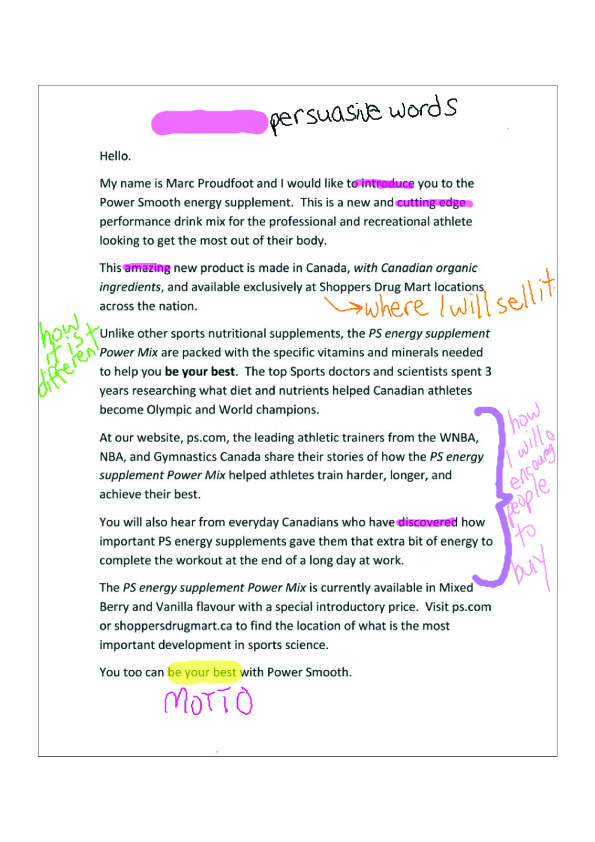 persuasive words
Hello.
My name is Marc Proudfoot and I would like to introduce you to the
Power Smooth energy supplement.  This is a new and cutting edge
performance drink mix for the professional and recreational athlete
looking to get the most out of their body.
This amazing new product is made in Canada, with Canadian organic
ingredients, and available exclusively at Shoppers Drug Mart locations
across the nation.
where I will sell it
how
it is
different
Unlike other sports nutritional supplements, the PS energy supplement
Power Mix are packed with the specific vitamins and minerals needed
to help you be your best.  The top Sports doctors and scientists spent 3
years researching what diet and nutrients helped Canadian athletes
become Olympic and World champions.
At our website, ps.com, the leading athletic trainers from the WNBA,
NBA, and Gymnastics Canada share their stories of how the PS energy
supplement Power Mix helped athletes train harder, longer, and
achieve their best.
how
I will
people
to
buy
You will also hear from everyday Canadians who have discovered how
important PS energy supplements gave them that extra bit of energy to
complete the workout at the end of a long day at work.
The PS energy supplement Power Mix is currently available in Mixed
Berry and Vanilla flavour with a special introductory price.  Visit ps.com
or shoppersdrugmart.ca to find the location of what is the most
important development in sports science.
You too can be your best with Power Smooth.
MOTTO